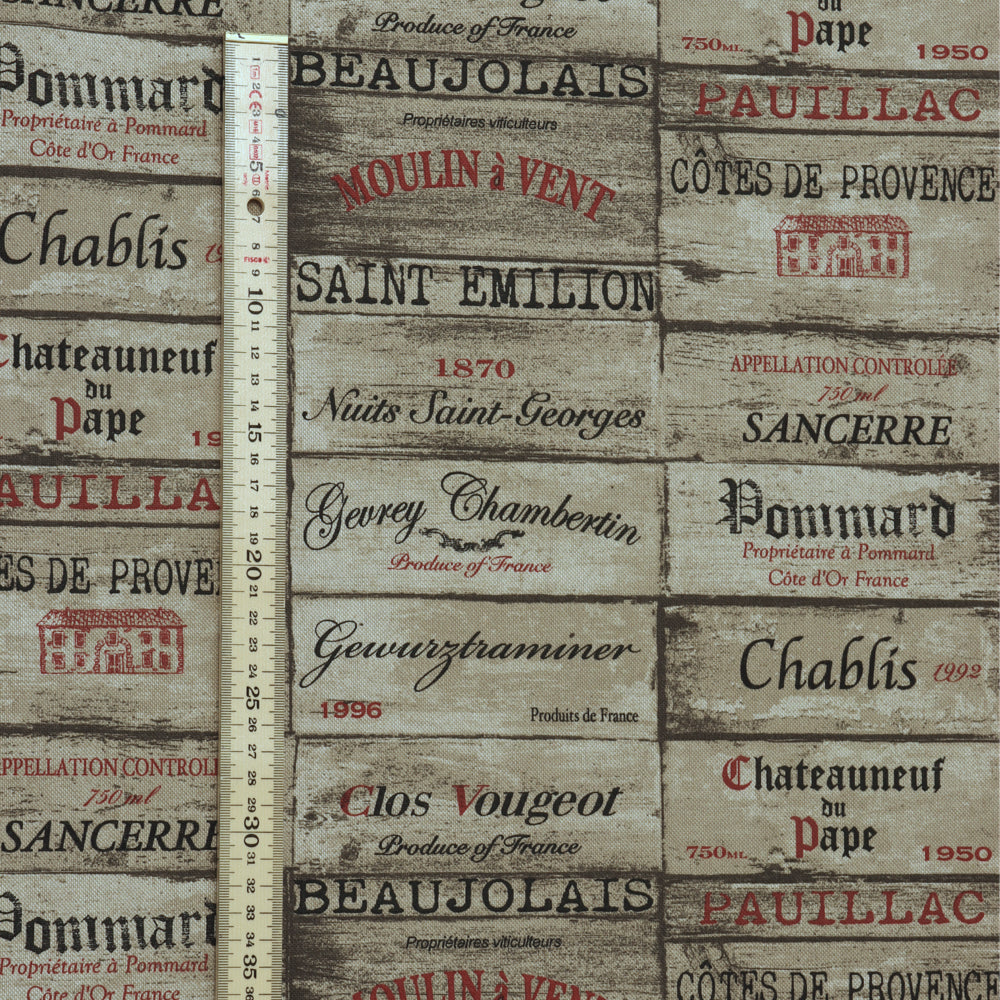 SANCERRE
Pommard
Propriétaire à Pommard
Côte d'Or France
Chablis
Chateauneuf
du
Pape
19
AUILLA
ES DE PROVE
APPELLATION CONTROL
750 ml
SANCERRE
Pommard
Propriétaire à Pommard
Côte d'Or France
1
2
3
4
5
6
7
8
FISCO
9
10
11
12
13
14
15
16
17
18
19
20
21
22
23
24
25
26
27
28
29
30
31
32
33
34
35
36
Produce of France
BEAUJOLAIS
Propriétaires viticulteurs
MOULIN à VENT
SAINT EMILION
1870
Nuits Saint-Georges
Gevrey Chambertin
Produce of France
Gewurztraminer
1996 Produits de France
Clos Vougeot
Produce of France
BEAUJOLAIS
Propriétaires viticulteurs
MOULIN à VENT
du
750ML Pape 1950
PAUILLAC
CÔTES DE PROVENCE
APPELLATION CONTROLÉE
750 ml
SANCERRE
Pommard
Propriétaire à Pommard
Côte d'Or France
Chablis 1992
Chateauneuf
du
750ML Pape 1950
PAUILLAC
CÔTES DE PROVENCE